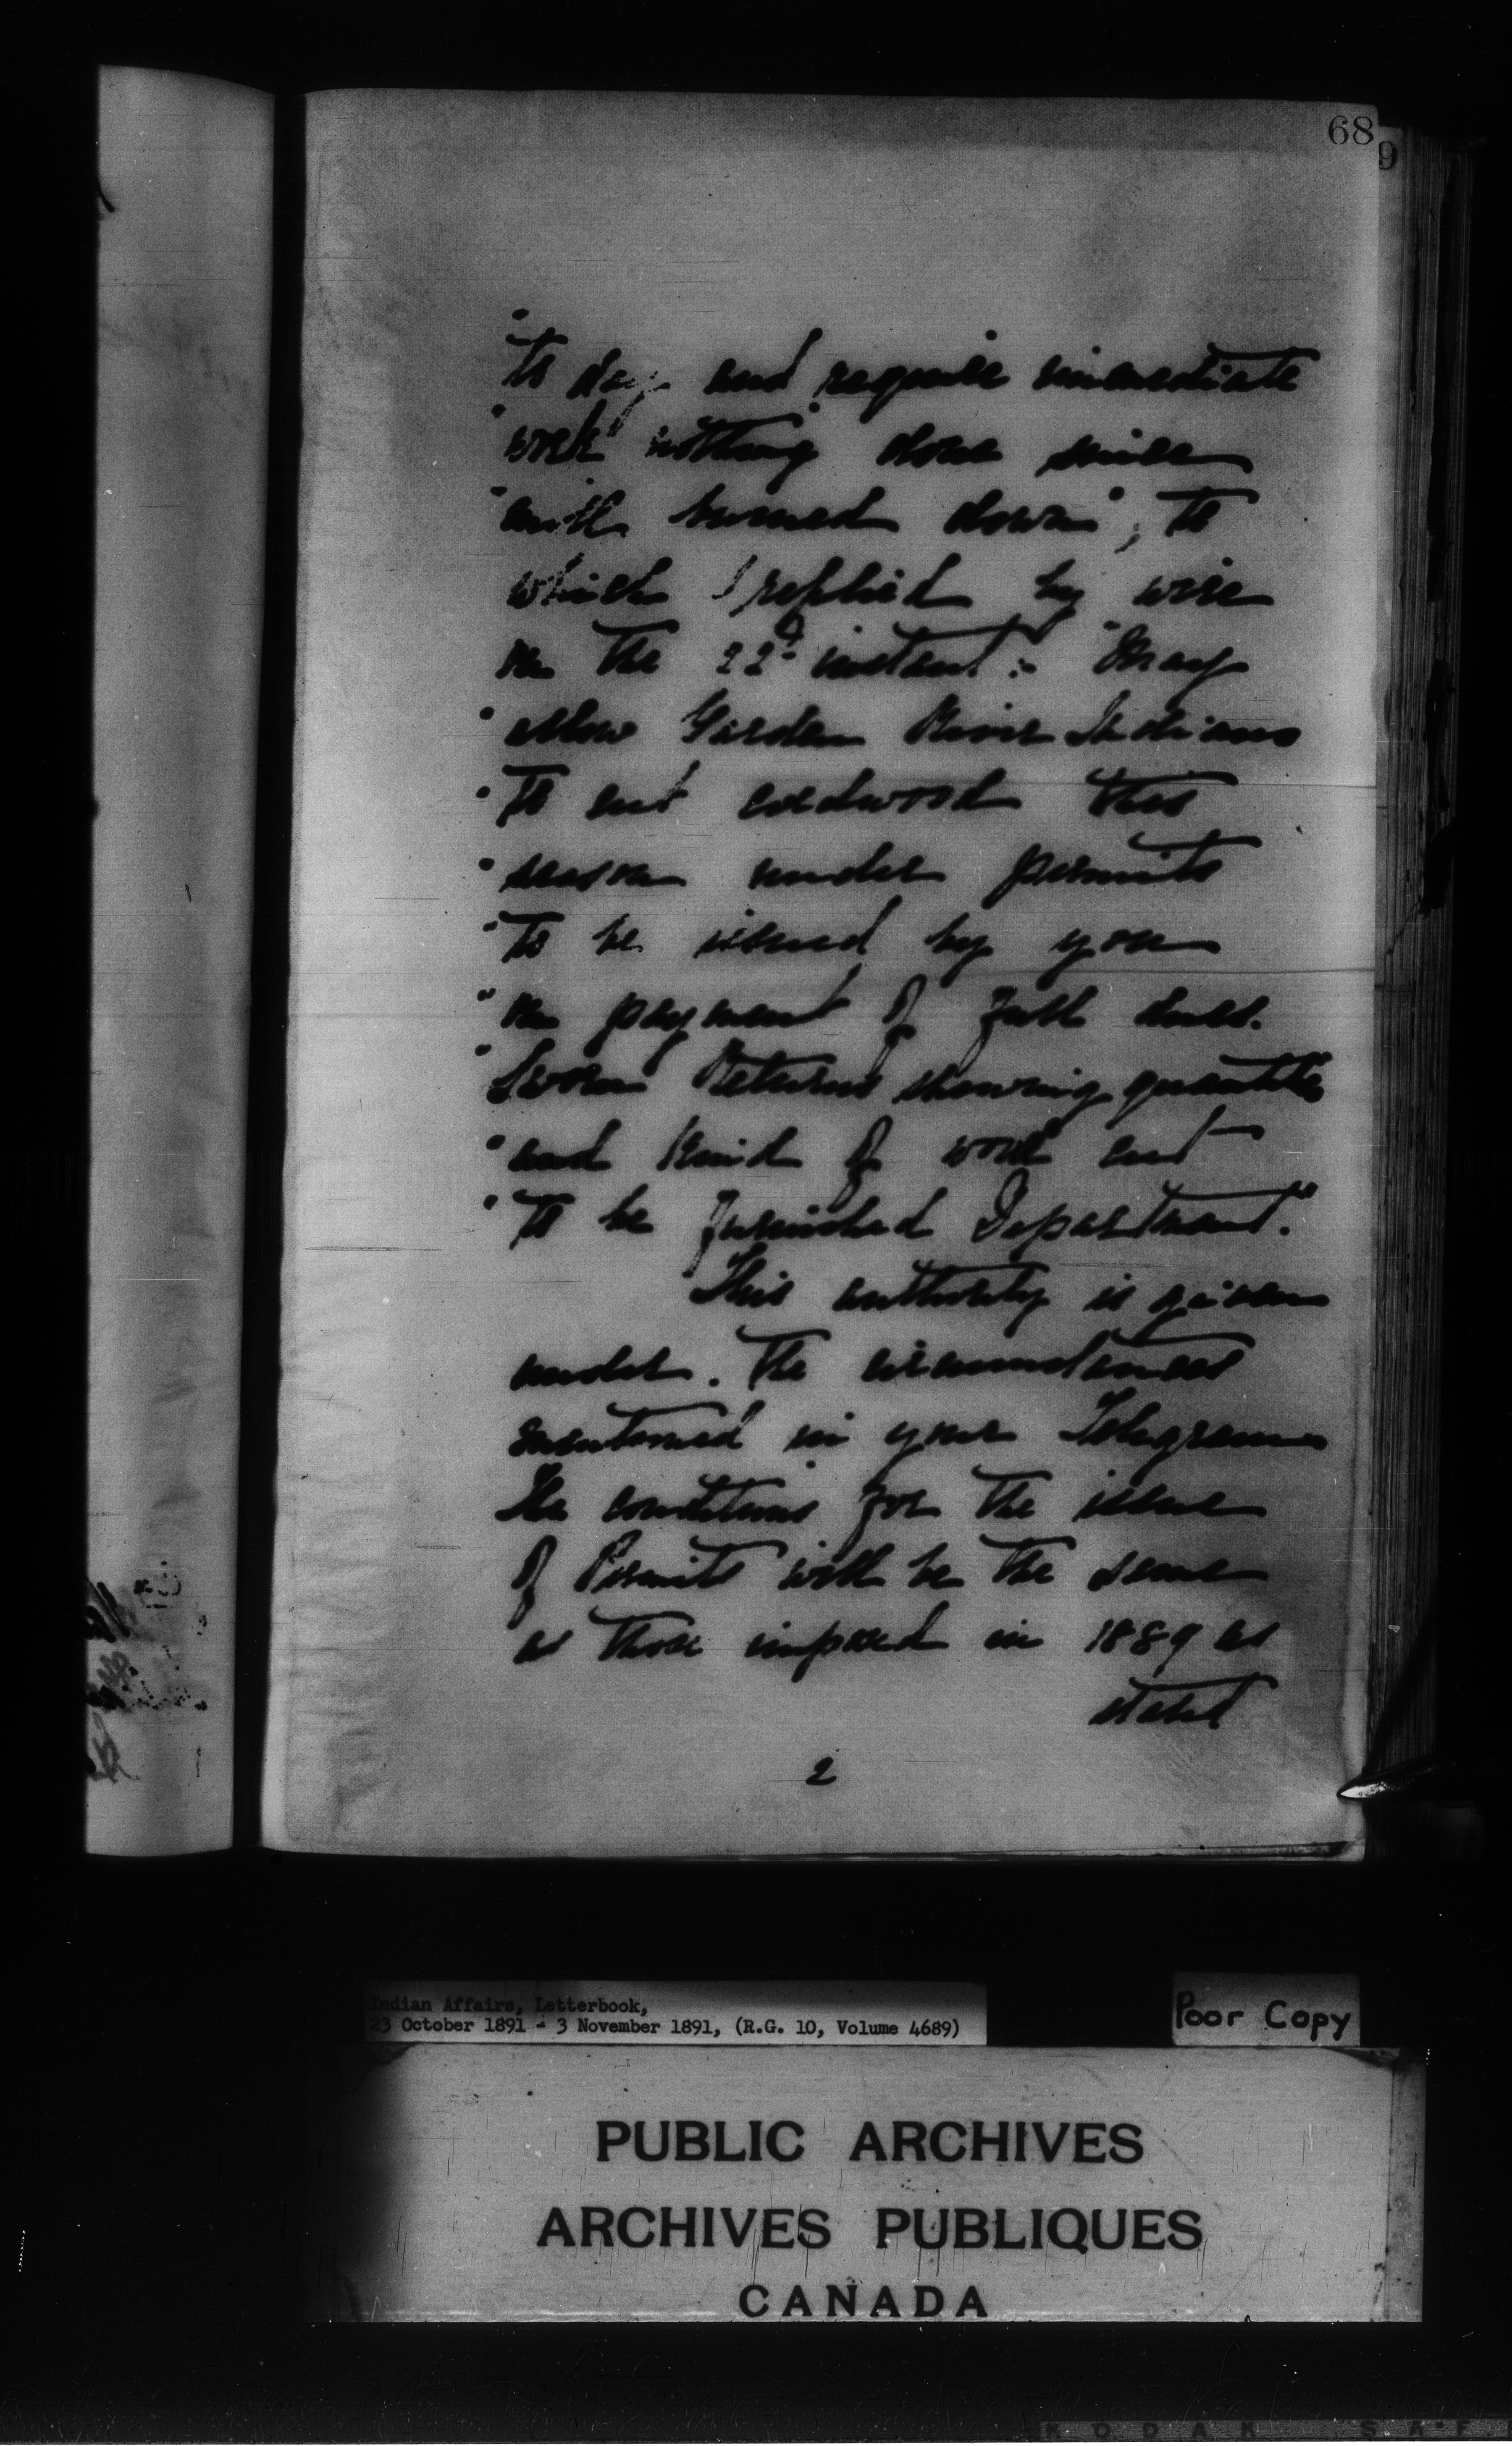 68
9
"to day and require immediate
"work nothing done since
"mill burned down", to
which I replied by wire
on the 22d instant: "May
"allow Garden River Indians
"to cut cordwood this
"season under permits
"to be issued by you
"on payment of full dues.
"Sworn Returns showing quantity
"and kind of wood cut
"to be furnished Department."
This authority is given
under the circumstances
mentioned in your Telegram
The conditions for the issue
of Permits will be the same
as those imposed in 1889 as
stated
2
Indian Affairs, Letterbook,
23 October 1891 - 3 November 1891, (R.G. 10, Volume 4689)
Poor Copy
PUBLIC ARCHIVES
ARCHIVES PUBLIQUES
CANADA
KODAK SAFE